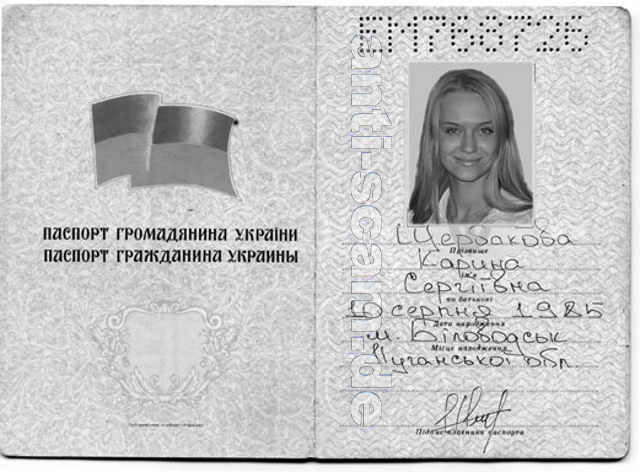 ПАСПОРТ ГРОМАДЯНИНА УКРАЇНИ
ПАСПОРТ ГРАЖДАНИНА УКРАИНЫ
ЕМ766726
Щербакова
Прізвище
Карина
Ім'я
Сергіївна
по батькові
10 серпня 1985
Дата народження
м. Біловодськ
Місце народження
Луганської обл.
Підпис власника паспорта
anti-scam.de